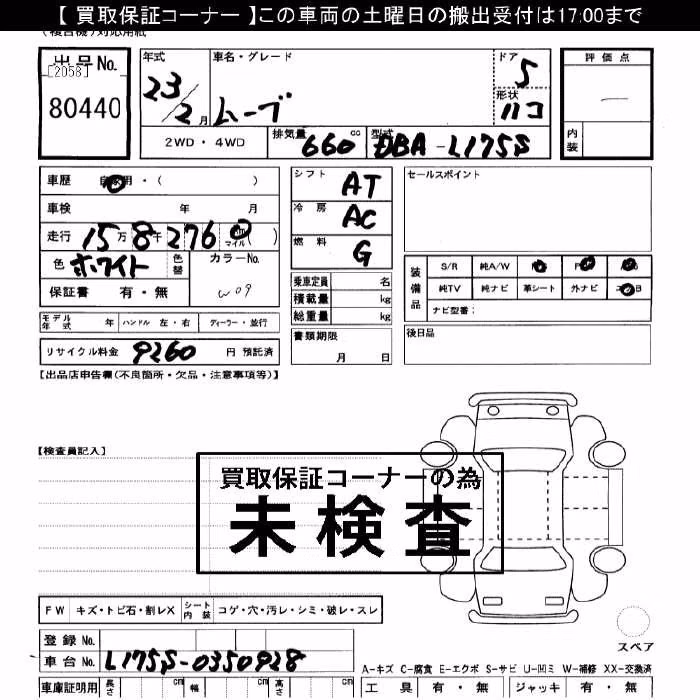 【 買取保証コーナー 】この車両の土曜日の搬出受付は17:00まで
(複合機)対応用紙
出品No. [2058] 80440
年式 23/2月
車名・グレード ムーブ
ドア 5
形状 ハコ
評価点 —
内装
2WD・4WD
排気量 660 cc
型式 DBA-L175S
車歴 自家用・( )
車検 年 月
走行 15万8千276 km マイル ( )
色 ホワイト 色替 カラーNo. W09
保証書 有・無
シフト AT
冷房 AC
燃料 G
乗車定員 名
積載量 kg
総重量 kg
セールスポイント
装備品 S/R 純A/W
純TV 純ナビ 革シート 外ナビ
ナビ型番:
モデル年式 年 ハンドル 左・右 ディーラー・並行
リサイクル料金 9260 円 預託済
書類期限 月 日
後日品
【出品店申告欄(不良箇所・欠品・注意事項等)】
【検査員記入】
買取保証コーナーの為
未検査
FW キズ・トビ石・割レX シート内装 コゲ・穴・汚レ・シミ・破レ・スレ
登録No.
車台No. L175S-0350928
スペア
A-キズ C-腐食 E-エクボ S-サビ U-凹ミ W-補修 XX-交換済
車庫証明用 長さ cm 幅 cm 高さ cm
工具 有・無 ジャッキ 有・無